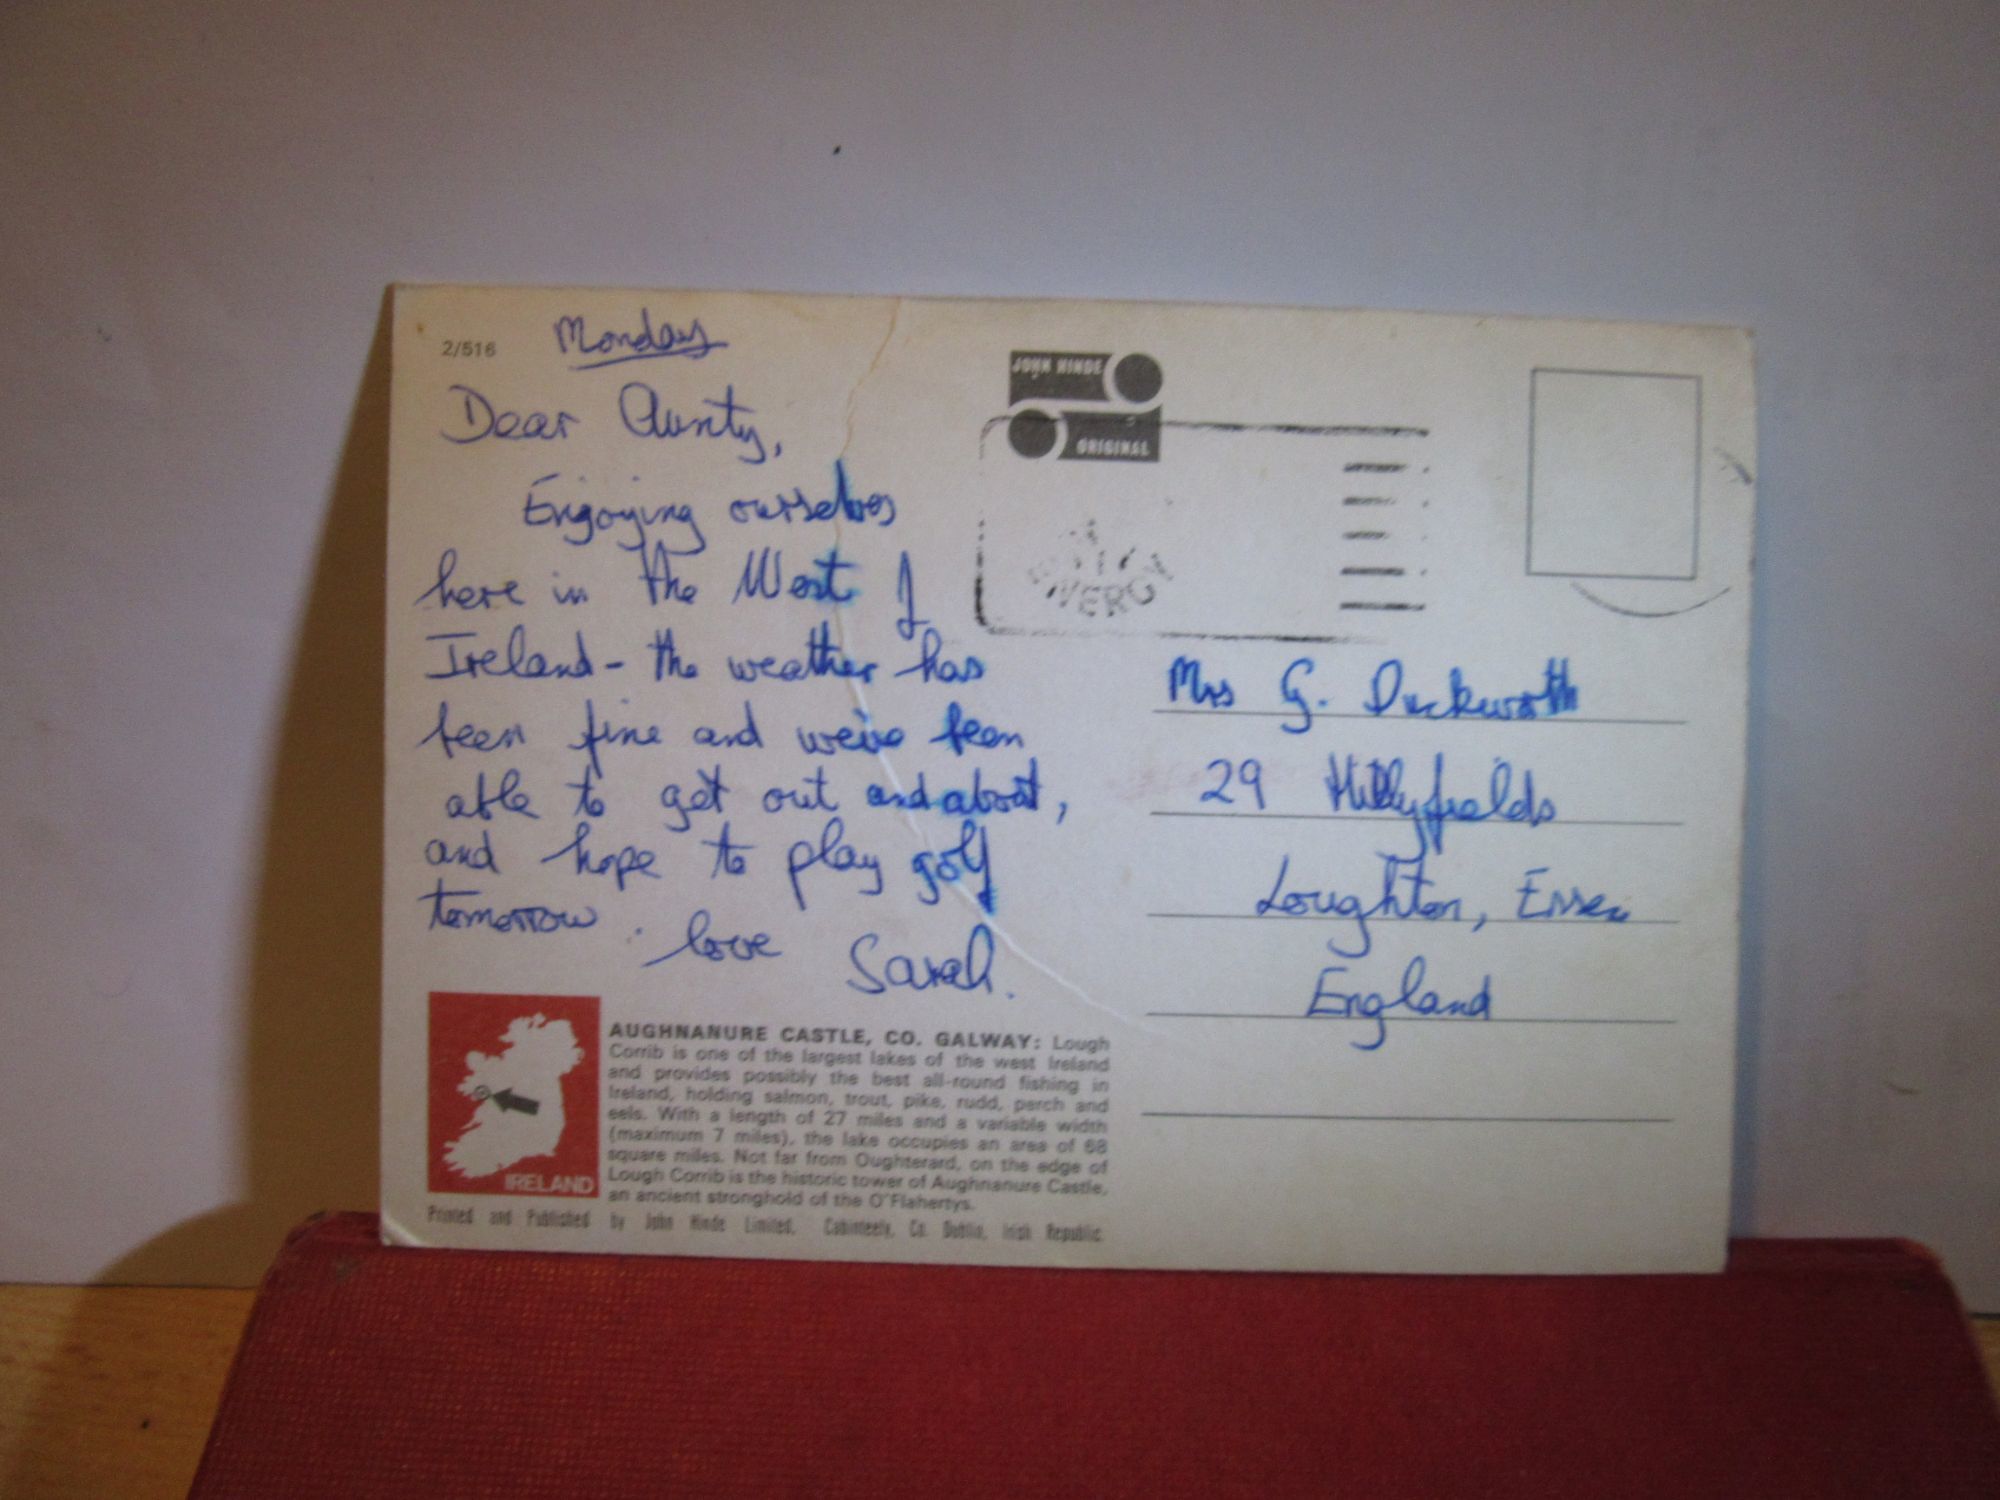 2/516
Monday
Dear Aunty,
Enjoying ourselves
here in the West of
Ireland - the weather has
been fine and we've been
able to get out and about,
and hope to play golf
tomorrow.
love Sarah.
JOHN HINDE
ORIGINAL
ENERGY
Mrs G. Duckworth
29 Hillyfields
Loughton, Essex
England
IRELAND
AUGHNANURE CASTLE, CO. GALWAY: Lough
Corrib is one of the largest lakes of the west Ireland
and provides possibly the best all-round fishing in
Ireland, holding salmon, trout, pike, rudd, perch and
eels. With a length of 27 miles and a variable width
(maximum 7 miles), the lake occupies an area of 68
square miles. Not far from Oughterard, on the edge of
Lough Corrib is the historic tower of Aughnanure Castle,
an ancient stronghold of the O'Flahertys.
Printed and Published by John Hinde Limited, Cabinteely, Co. Dublin, Irish Republic.